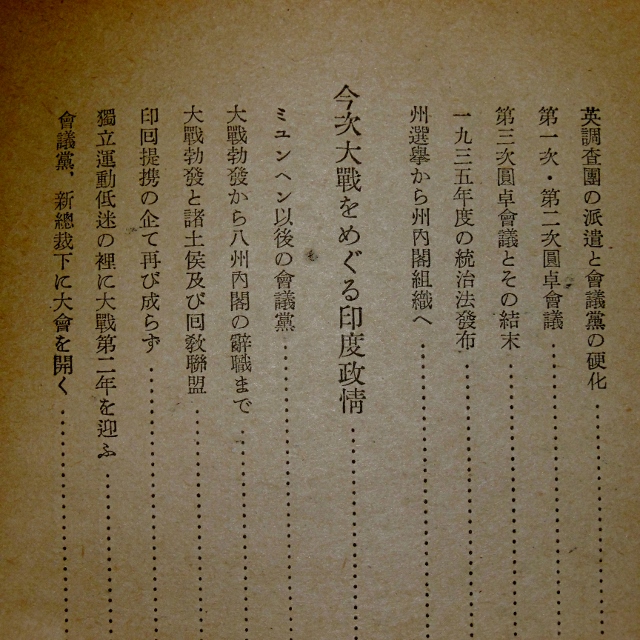 英調査團の派遣と會議黨の硬化
第一次・第二次圓卓會議
第三次圓卓會議とその結末
一九三五年度の統治法發布
州選擧から州內閣組織へ
今次大戰をめぐる印度政情
ミユンヘン以後の會議黨
大戰勃發から八州內閣の辭職まで
大戰勃發と諸土侯及び回敎聯盟
印回提携の企て再び成らず
獨立運動低迷の裡に大戰第二年を迎ふ
會議黨、新總裁下に大會を開く